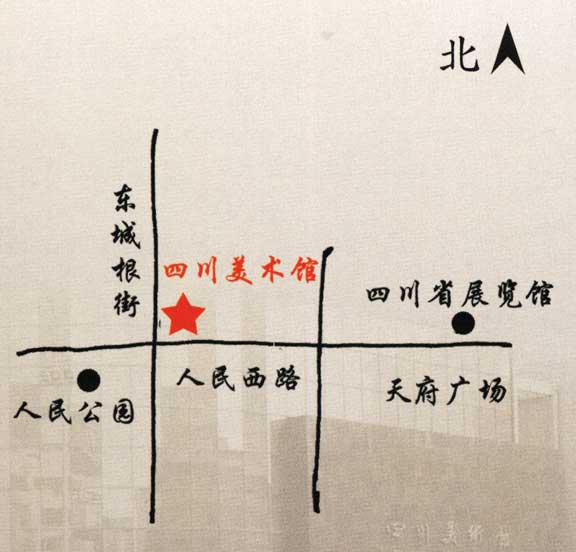 北
东城根街
四川美术馆
四川省展览馆
人民西路
天府广场
人民公园
四川美术